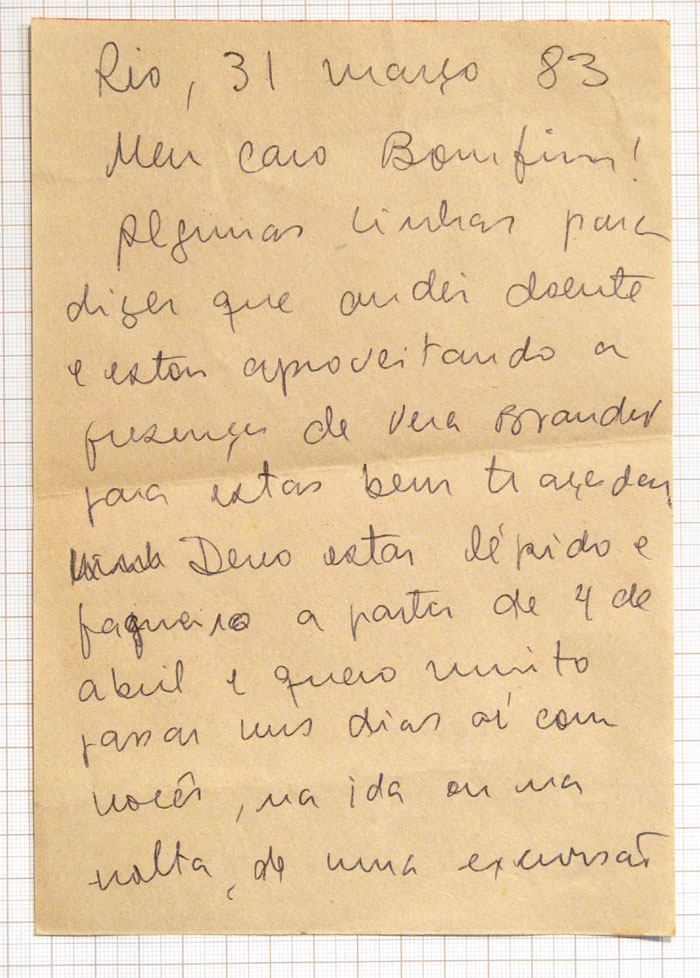 Rio, 31 março 83
Meu caro Bomfim!
Algumas linhas para
dizer que andei doente
e estou aproveitando a
presença de Vera Brandet
para estas bem traçadas
Devo estar lépido e
fagueiro a partir de 4 de
abril e quero muito
passar uns dias aí com
vocês, na ida ou na
volta, de uma excursão